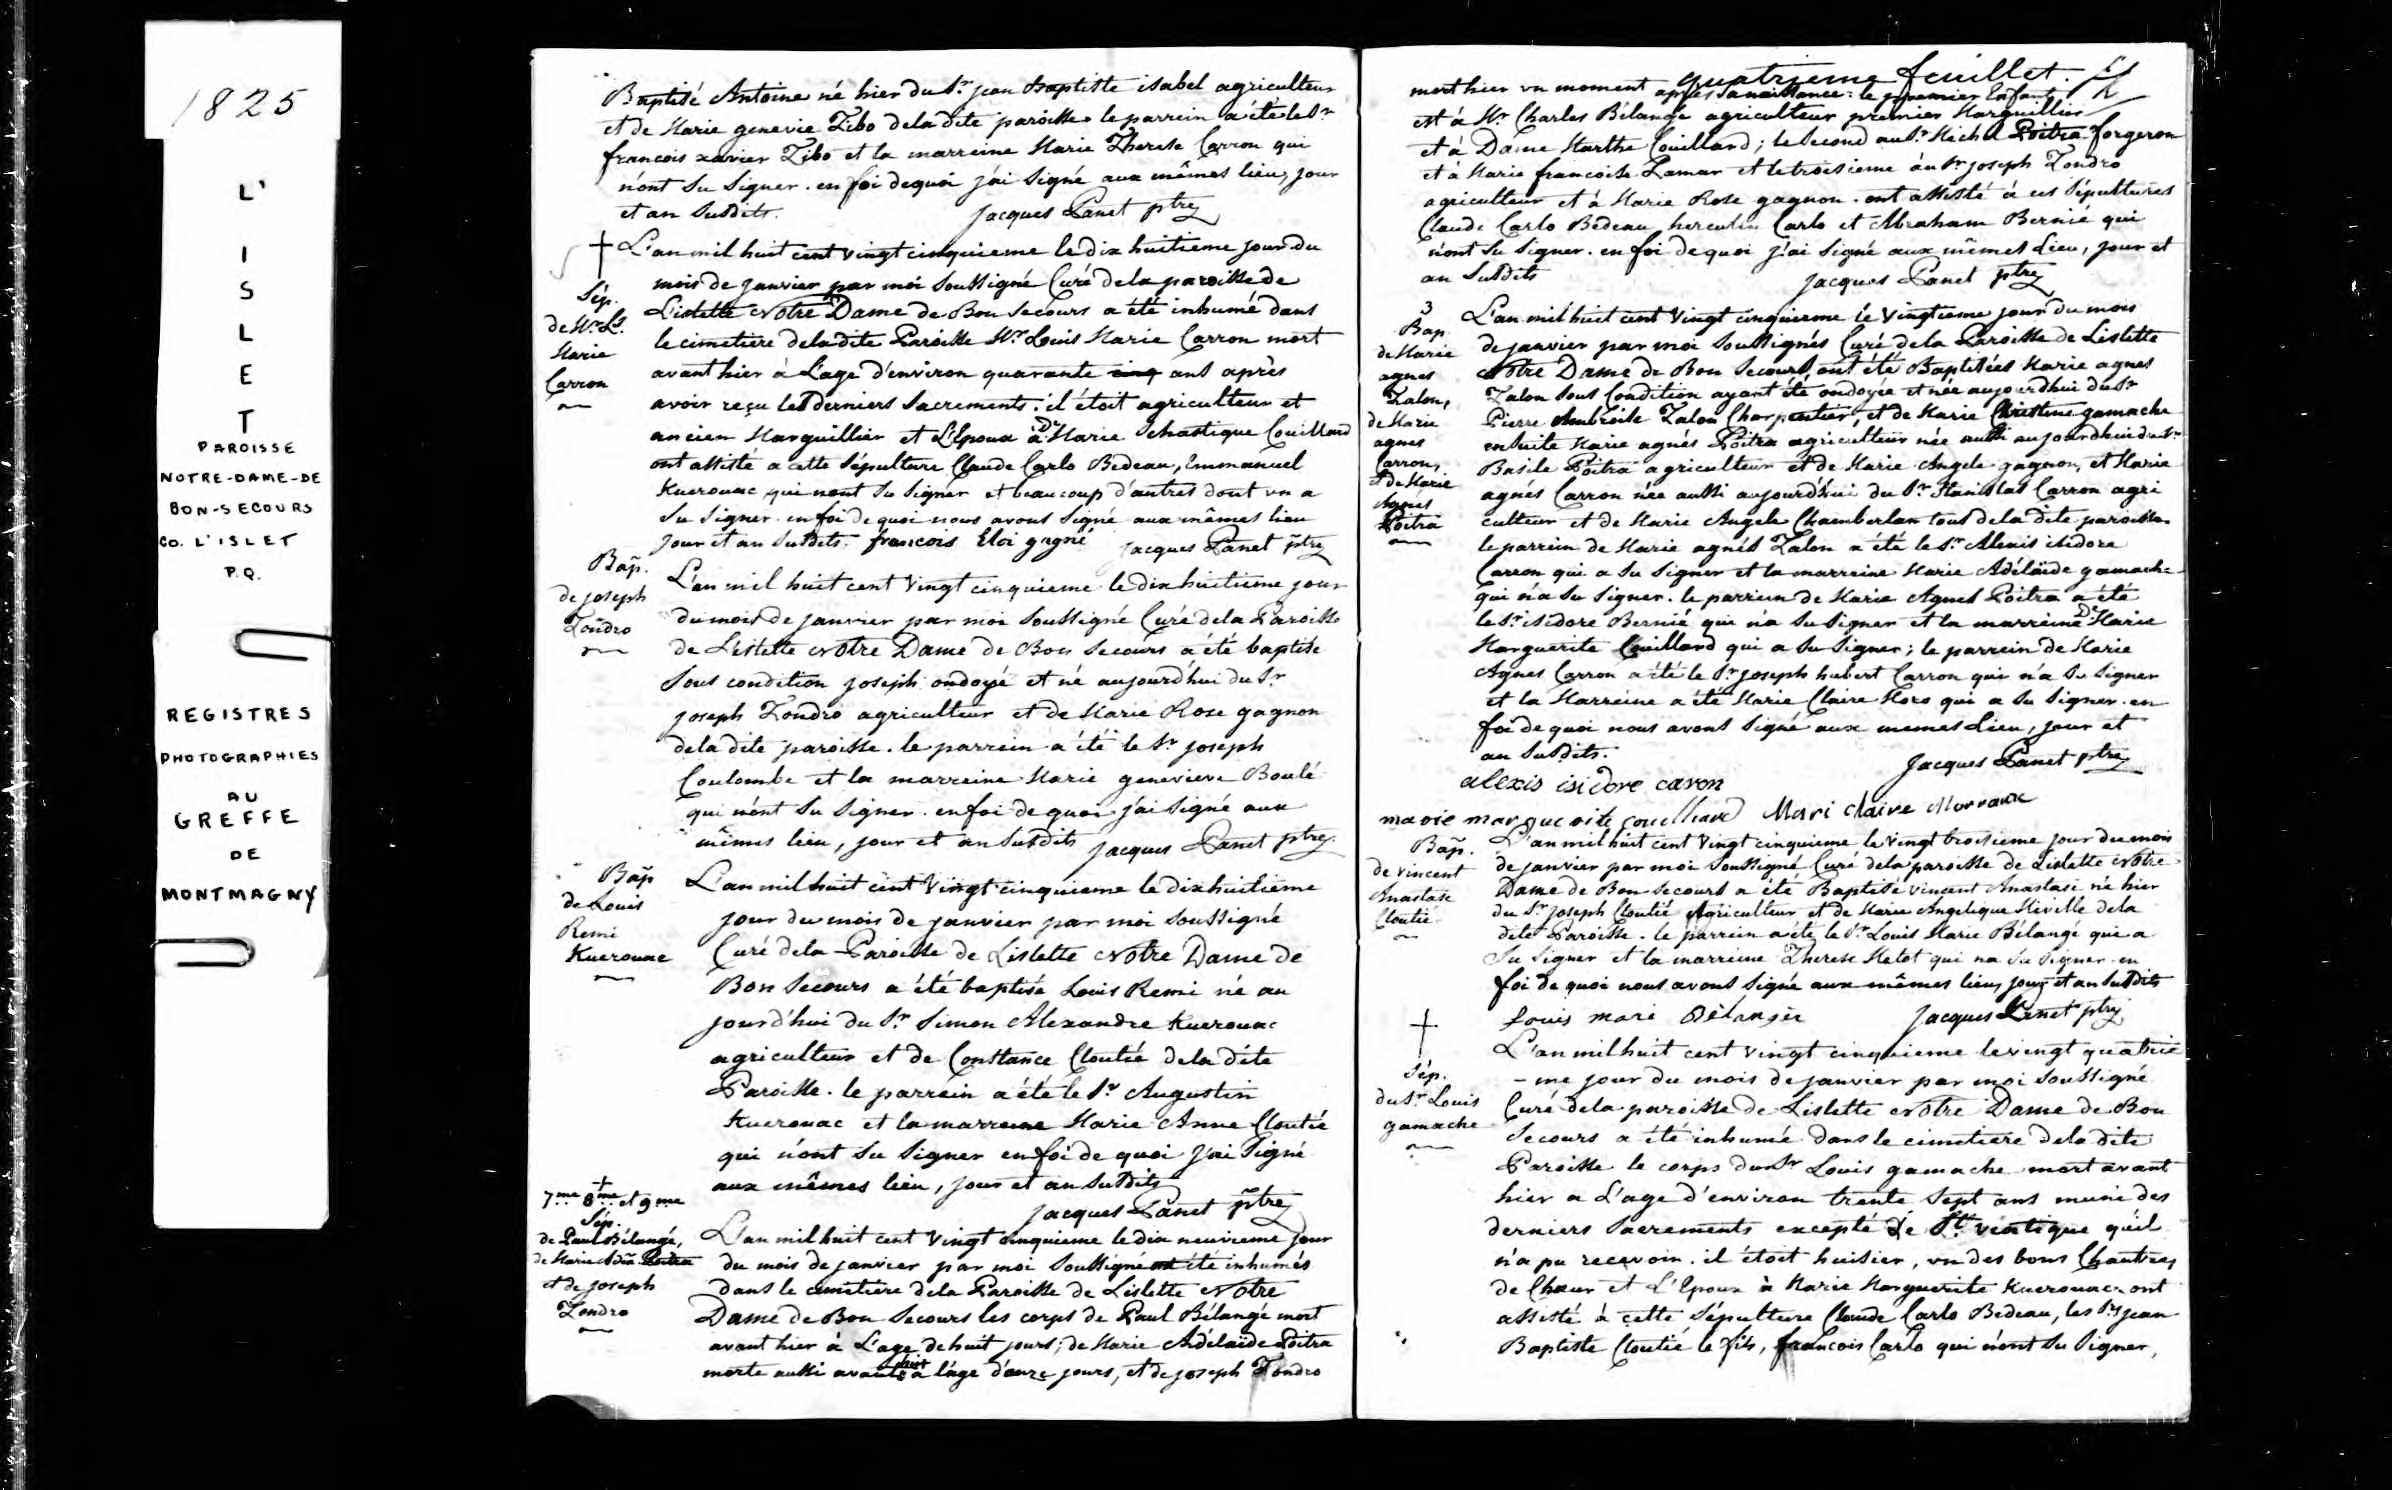 1825
L'
I
S
L
E
T
PAROISSE
NOTRE-DAME-DE
BON-SECOURS
CO. L'ISLET
P.Q.
REGISTRES
PHOTOGRAPHIES
AU
GREFFE
DE
MONTMAGNY
Baptisé Antoine né hier du Sr. jean Baptiste isabel agriculteur
et de Marie genevie Tibo dela dite paroisse. le parrein a été le Sr
francois xavier Tibo et la marreine Marie Therese Carron qui
n'ont Su Signer. en foi dequoi j'ai Signé aux mêmes lieu, jour
et an Susdits. Jacques Panet ptre
L'an mil huit cent vingt cinquieme le dix huitieme jour du
mois de janvier par moi Soussigné Curé dela paroisse de
Sép.
de Mr. Ls.
Marie
Carron
Lislette Notre Dame de Bon Secours a été inhumé dans
le cimetiere dela dite Paroisse Mr. Louis Marie Carron mort
avant hier à L'age d'environ quarante cinq ans après
avoir reçu les Derniers Sacrements. il étoit agriculteur et
ancien Marguillier et L'Epoux à De Marie Scholastique Couillard
ont assisté a cette Sépulture Claude Carlo Bedeau, Emmanuel
Kuerouac qui n'ont Su Signer et beaucoup d'autres dont un a
Su Signer. en foi de quoi nous avons Signé aux mêmes lieu
jour et an Susdits. francois Eloi gagné Jacques Panet ptre
Bap.
de joseph
Zondro
L'an mil huit cent Vingt cinquieme le dix huitieme jour
du mois de janvier par moi Soussigné Curé dela Paroisse
de Lislette Notre Dame de Bon Secours a été baptisé
Sous condition joseph ondoyé et né aujourd'hui du Sr.
joseph Zondro agriculteur et de Marie Rose gagnon
dela dite paroisse. le parrein a été le Sr. joseph
Coulombe et la marreine Marie genevieve Boulé
qui n'ont Su Signer. en foi de quoi j'ai Signé aux
mêmes lieu, jour et an Susdits Jacques Panet ptre
Bap
de Louis
Remi
Kuerouac
L'an mil huit cent Vingt cinquieme le dix huitième
jour du mois de janvier par moi Soussigné
Curé dela Paroisse de Lislette Notre Dame de
Bon Secours a été baptisé Louis Remi né au
jourd'hui du Sr. Simon Alexandre Kuerouac
agriculteur et de Constance Cloutié dela dite
Paroisse. le parrein a été le Sr. Augustin
Kuerouac et la marreine Marie Anne Cloutié
qui n'ont Su Signer en foi de quoi J'ai Signé
aux mêmes lieu, jour et an Susdits
Jacques Panet ptre
7me 8me et 9me
Sép.
de Paul Bélangé,
de Marie Adée Poitra
et de joseph
Zondro
L'an mil huit cent Vingt cinquieme le dix neuvieme jour
du mois de janvier par moi Soussigné ont été inhumés
dans le cimetiere dela Paroisse de Lislette Notre
Dame de Bon Secours les corps de Paul Bélangé mort
avant hier à L'age de huit jours; de Marie Adélaide Poitra
morte aussi avant hier a l'age d'onze jours, et de joseph Zondro
quatrieme feuillet.
mort hier un moment après Sa naissance: le premier Enfant
est à Mr. Charles Bélangé agriculteur premier Marguillier
et à Dame Marthe Couillard; le Second au Sr. Michel Poitra forgeron
et à Marie francoise Lamar et le troisieme au Sr joseph Zondro
agriculteur et à Marie Rose gagnon. ont assisté à ces Sépultures
Claude Carlo Bedeau herculin Carlo et Abraham Bernié qui
n'ont Su Signer. en foi de quoi j'ai Signé aux mêmes Lieu, jour et
an Susdits Jacques Panet ptre
3
Bap
de Marie
agnes
Zalon,
de Marie
agnes
Carron,
et de Marie
Agnés
Poitra
L'an mil huit cent Vingt cinquieme le Vingtieme jour du mois
de janvier par moi Soussignés Curé dela Paroisse de Lislette
Notre Dame de Bon Secours, ont été Baptisées Marie agnes
Zalon Sous Condition ayant été ondoyée et née aujourdhui du Sr
Pierre Ambroise Zalon Charpentier, et de Marie Christine gamache
ensuite Marie agnés Poitra agriculteur née aussi aujourdhui du Sr
Basile Poitra agriculteur et de Marie Angele gagnon, et Marie
agnés Carron née aussi aujourd'hui du Sr Stanislas Carron agri
culteur et de Marie Angele Chamberlan tous dela dite paroisse.
le parrein de Marie agnés Zalon a été le Sr. Alexis isidore
Carron qui a Su Signer et la marreine Marie Adélaide gamache
qui n'a Su Signer. le parrein de Marie Agnes Poitra a été
le Sr. isidore Bernié qui n'a Su Signer et la marreine De Marie
Marguerite Couillard qui a Su Signer; le parrein de Marie
Agnes Carron a été le Sr. joseph hubert Carron qui n'a Su Signer
et la Marreine a été Marie Claire Moro qui a Su Signer. en
foi de quoi nous avons Signé aux memes Lieu, jour et
an Susdits. Jacques Panet ptre
alexis isidore caron
marie marguerite couellard Mari claire Morraux
Bap.
de vincent
Anastase
Cloutié
L'an mil huit cent Vingt cinquieme le Vingt troisieme jour du mois
de janvier par moi Soussigné Curé dela paroisse de Lislette Notre
Dame de Bon Secours a été Baptisé vincent Anastase né hier
du Sr. joseph Cloutié Agriculteur et de Marie Angelique Miville dela
dite Paroisse. le parrein a été le Sr. Louis Marie Bélangé qui a
Su Signer et la marreine Therese Matot qui na Su Signer. en
foi de quoi nous avons Signé aux mêmes lieu, jour et an Susdits
Louis mari Bèlanger Jacques Panet ptre
Sép.
du Sr Louis
gamache
L'an mil huit cent vingt cinquieme le vingt quatrie
- me jour du mois de janvier par moi Soussigné
Curé dela paroisse de Lislette Notre Dame de Bon
Secours a été inhumé dans le cimetiere dela dite
Paroisse le corps du Sr Louis gamache mort avant
hier a L'age d'environ trente Sept ans muni des
derniers Sacrements excepté Le St. viatique qu'il
n'a pu recevoir. il étoit huissier, un des bons Chantres
de Chœur et L'Epoux à Marie Marguerite Kuerouac. ont
assisté à cette Sépulture Claude Carlo Bedeau, les Srs jean
Baptiste Cloutié le fils, francois Carlo qui n'ont Su Signer,